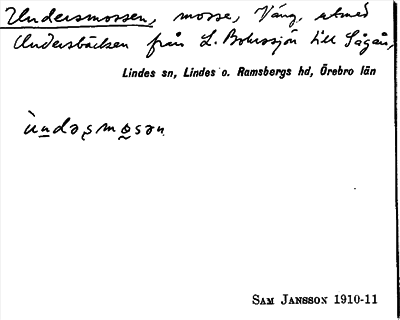 Undersmossen, mosse, Väng, utmed
Undersbäcken från L. Bohrssjön till Sågån,
Lindes sn, Lindes o. Ramsbergs hd, Örebro län
Sam Jansson 1910-11